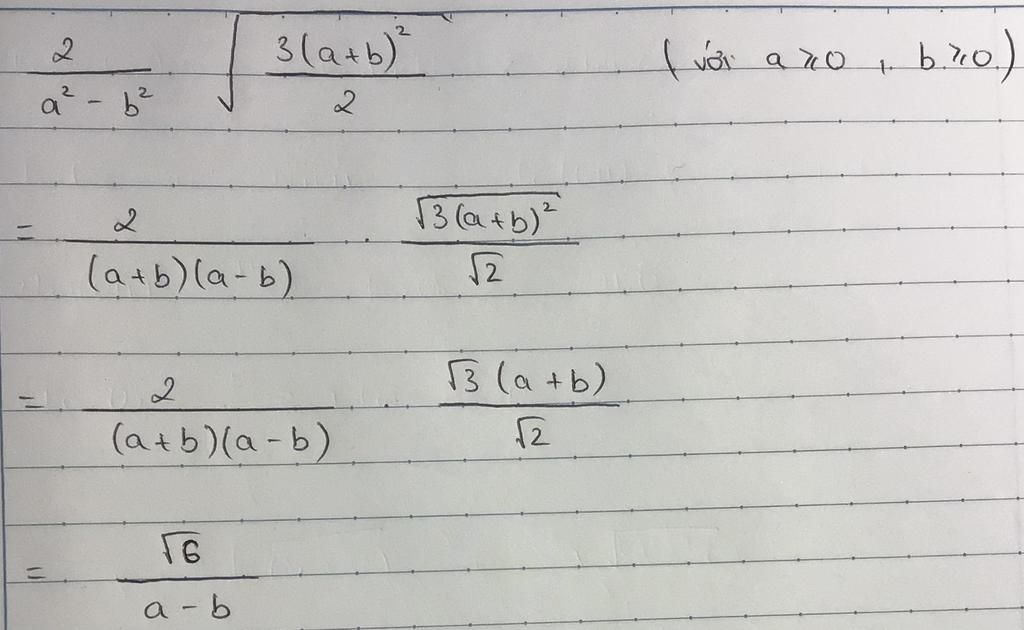 2/(a² - b²) √(3(a+b)²/2) (với a ≥ 0, b ≥ 0)
= 2/((a+b)(a-b)) . √(3(a+b)²)/√2
= 2/((a+b)(a-b)) . √3 (a+b)/√2
= √6/(a-b)